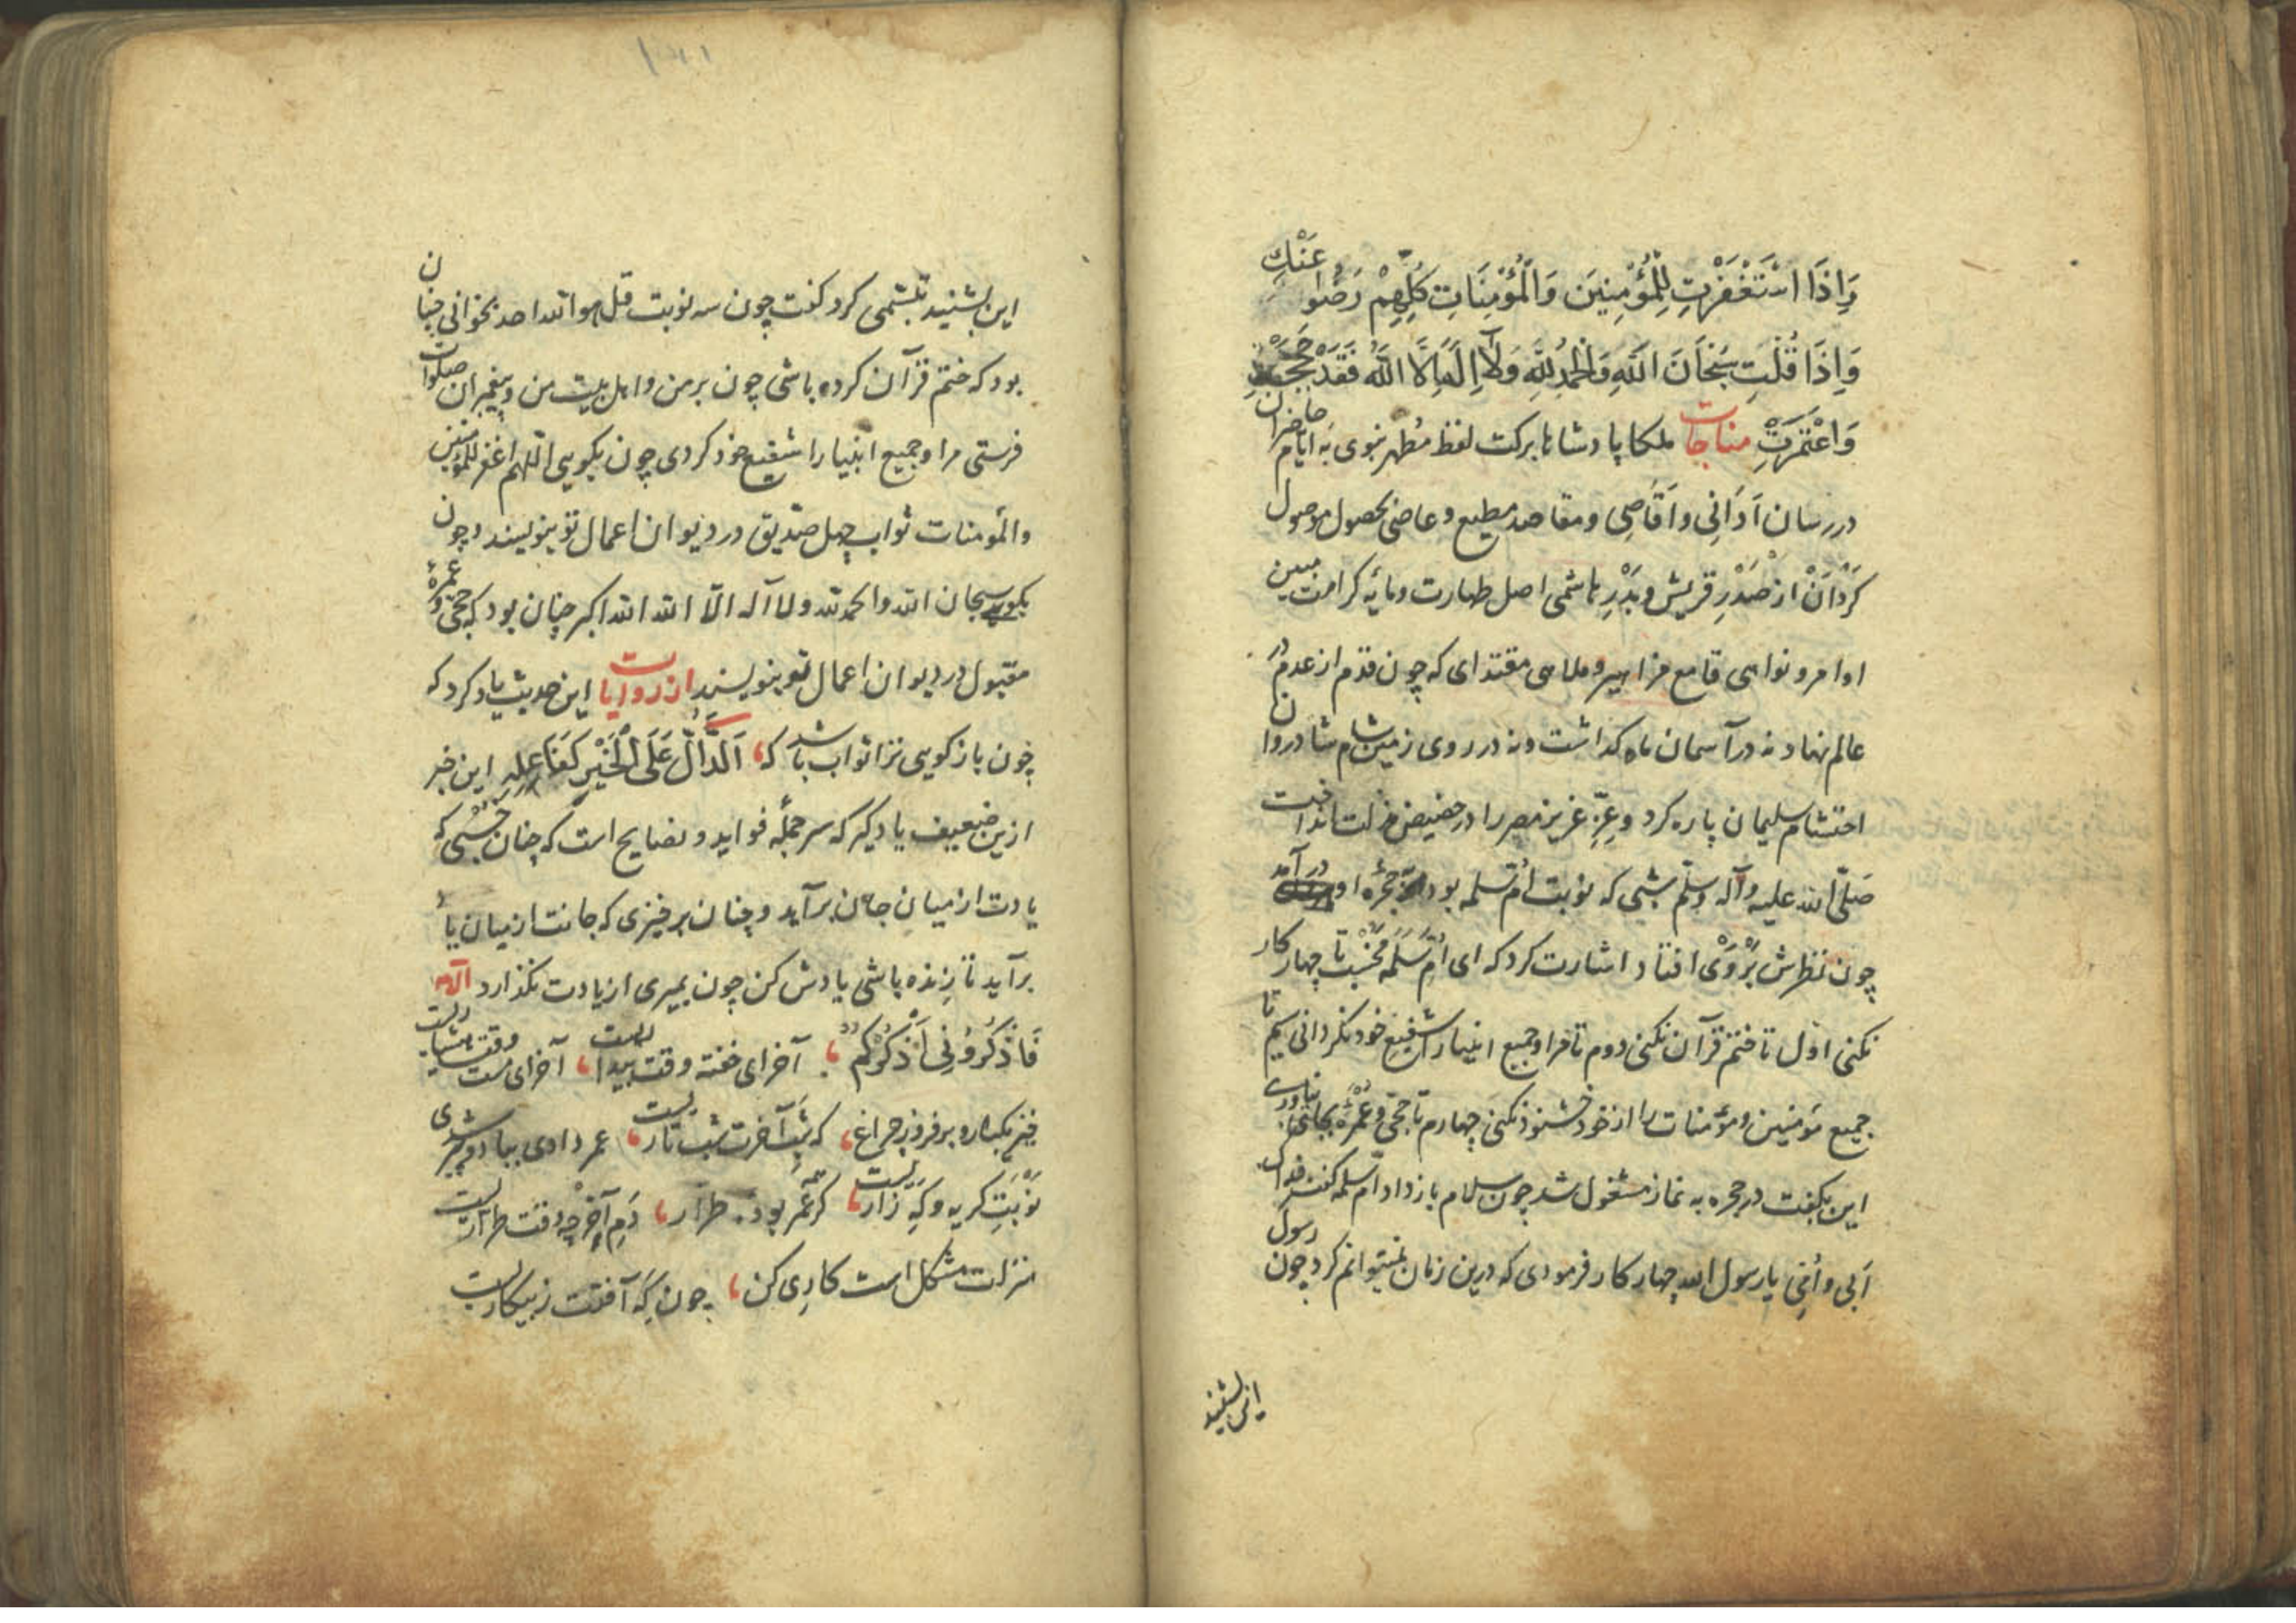 وَاِذَا اسْتَغْفَرْتِ لِلْمُؤْمِنِينَ وَالْمُؤْمِنَاتِ كُلِّهِمْ رَضُوا عَنْكِ
وَاِذَا قُلْتِ سُبْحَانَ اللّٰهِ وَالْحَمْدُ لِلّٰهِ وَلَا اِلٰهَ اِلَّا اللّٰهُ فَقَدْ حَجَجْتِ
وَاعْتَمَرْتِ مناجات ملکا پادشاها برکت لفظ مُطهر نبوی به ایام حاضران
در رسان اَدَانِی و اَقَاصِی و مقاصد مطیع و عاصی بحصول موصول
کَرْدَانْ از صَدْرِ قریش و بَدْرِ هاشمی اصل طهارت و مایه کرامت مبین
اوامر و نواهی قامع مزامیر و ملاهی مقتدای که چون قدم از عدم در
عالم نهاد نه در آسمان ماه کذاشت و نه در روی زمین شام شادروان
احتشام سلیمان پاره کرد و عِزِّ عزیز مصر را در حضیض مذلت انداخت
صَلّی الله علیه وآله وسلّم شبی که نوبت اُم سَلمه بود حجرهٔ او در آمد
چون نظرش بَرْوَیْ افتاد اشارت کرد که ای اُمّ سَلَمَه مَخُسْب تا چهار کار
نکنی اوّل تا ختم قرآن نکنی دوم تا مرا و جمیع انبیا را شفیع خود نکردانی سیم تا
جمیع مؤمنین و مؤمنات را از خود خشنود نکنی چهارم تا حجّی و عُمْرَهٔ بجای نیاوری
این بکفت در حجره به نماز مشغول شد چون سلام باز داد اُم سلمه کفت فداک
اَبی و اُمّی یا رسول الله چهار کار فرمودی که درین زمان نمیتوانم کرد چون رسول
این بشنید
این بشنید تبسّمی کرد کفت چون سه نوبت قل هو الله احد بخوانی چنان
بود که ختم قرآن کرده باشی چون بر من و اهل بیت من و پیغمبران صلوات
فرستی مرا و جمیع انبیا را شفیع خود کردی چون بکویی اللّهم اغفر للمؤمنین
والمؤمنات ثواب چهل صدّیق در دیوان اعمال تو بنویسند و چون
بکویی سبحان الله والحمد لله ولا اله الّا الله الله اکبر چنان بود که حجّی و عمرهٔ
مقبول در دیوان اعمال تو بنویسند از روایات این حدیث یاد کرد که
چون باز کویی ترا ثواب باشد که اَلدَّالُّ عَلَی الْخَیْرِ کَفَاعِلِهِ این خبر
ازین ضعیف یاد کیر که سر جملهٔ فواید و نصایح است که چنان خسبی که
یادت از میان جان برآید و چنان برخیزی که جانت از میان یاد
برآید تا زنده باشی یادش کن چون بمیری از یادت نکذارد
فَاذْکُرُوُنِی اَذْکُرْکُمْ آخر ای خفته وقت بیداریست آخر ای مست وقت هشیاریست
خیز یکباره برفروز چراغ که شب آخرت شب تاریست عمر دادی بباد و پیر شدی
نَوْبَتِ کریه و کَهِ زاریست کر عُمَر بود طرار دَمِ آخر چه وقت طراریست
منزلت مشکل است کاری کن چون که آفتت ز بیکاریست